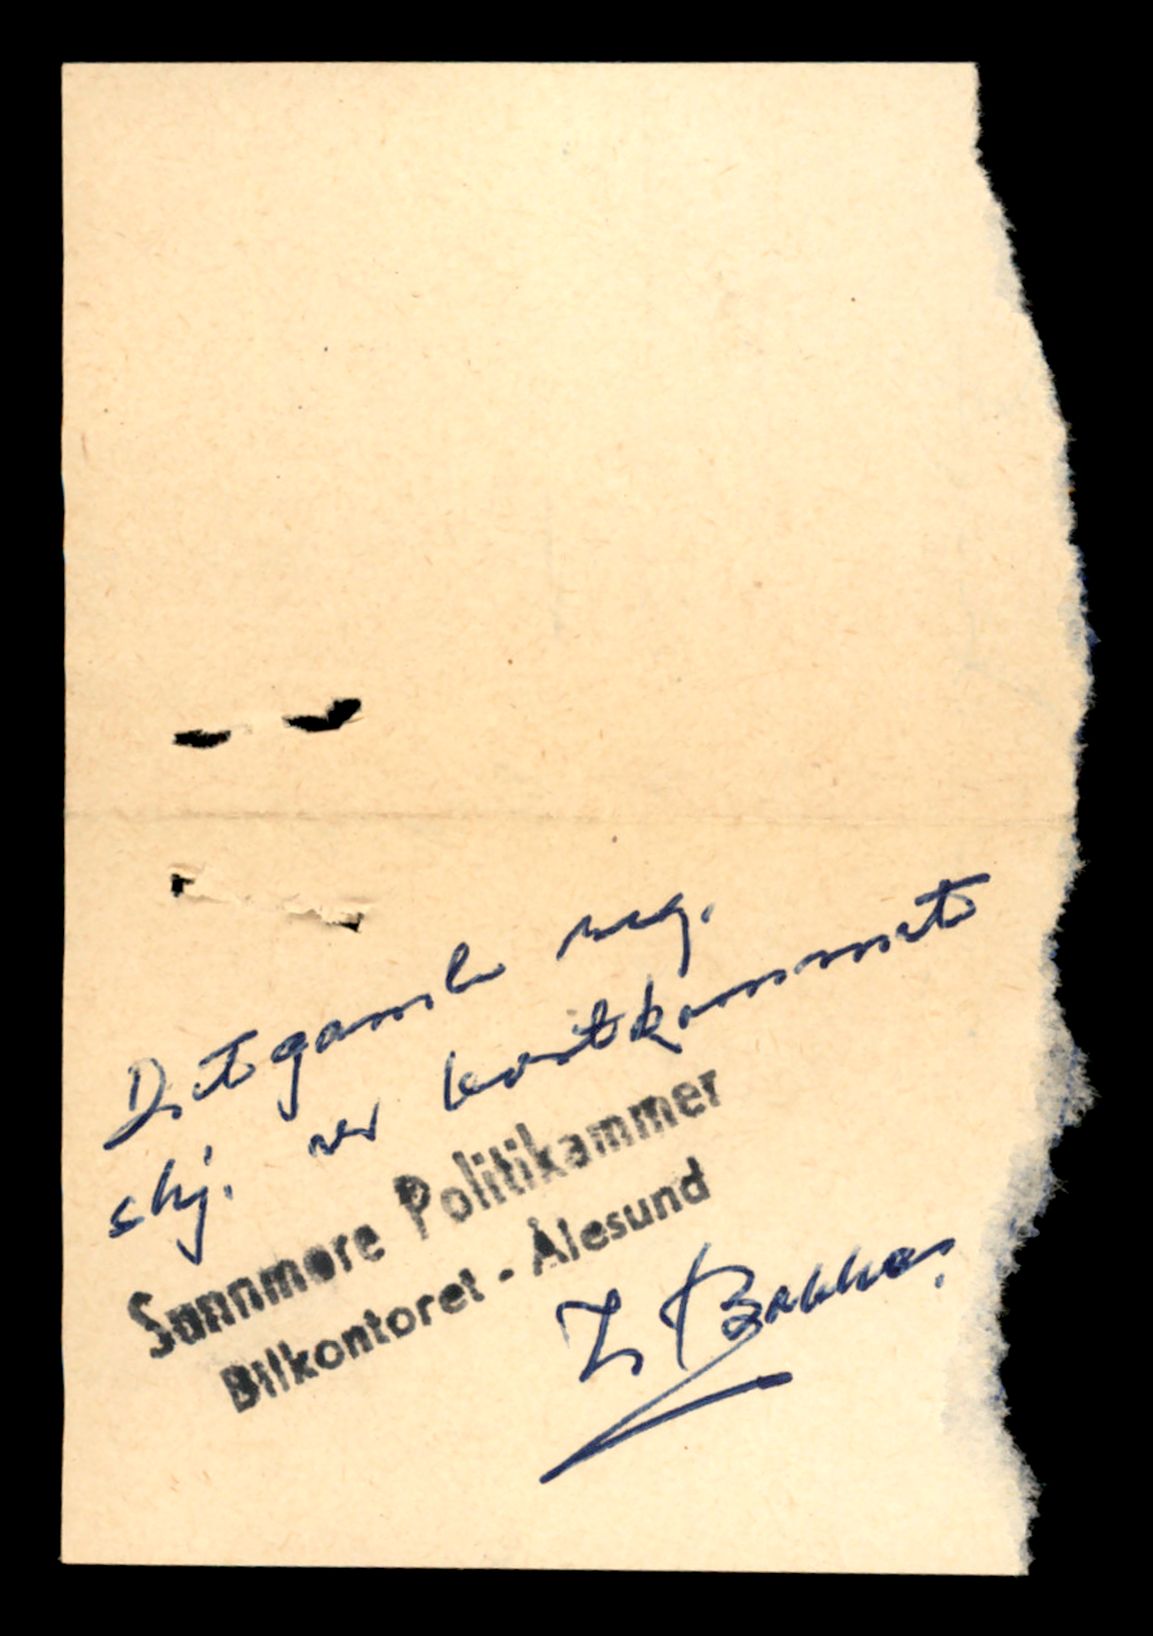 Det gamle reg.
skj. var bortkommet
Sunnmøre Politikammer
Bilkontoret - Ålesund
Bakke